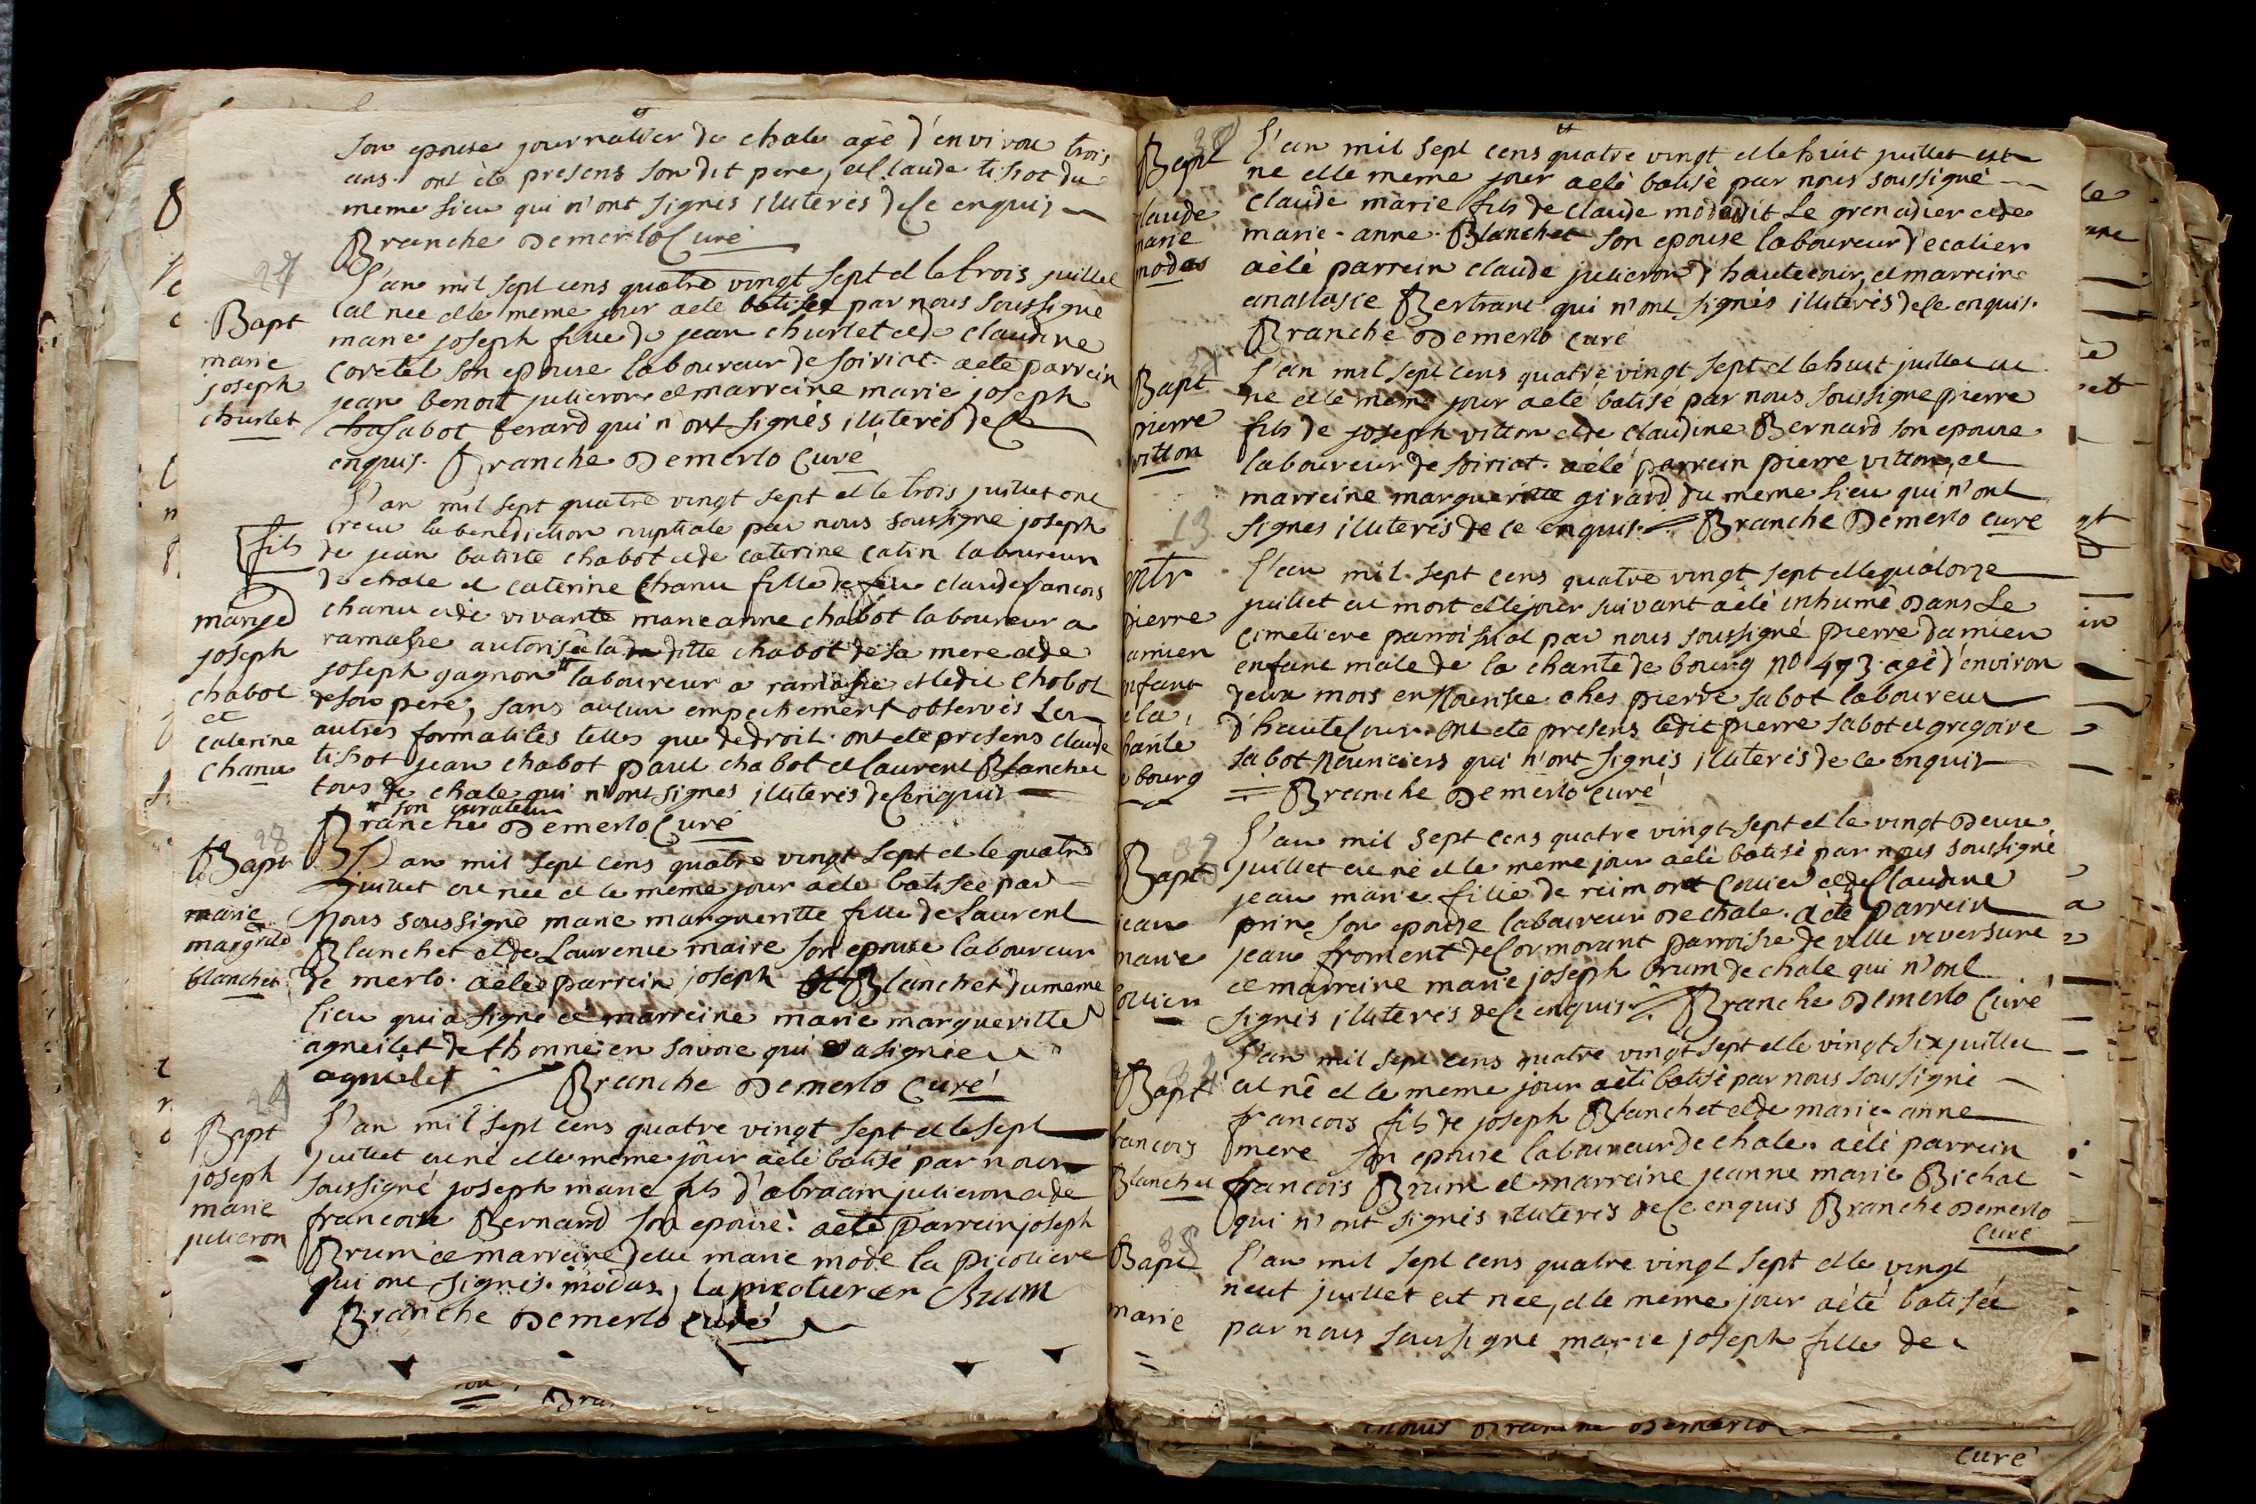 son epouse journalier de chale agé d'environ trois
ans. ont été presens son dit pere, et claude tissot du
meme lieu qui n'ont signés illiterés de ce enquis
Branche Demerlo Curé
27
Bapt
marie
joseph
churlet
L'an mil sept cens quatre vingt sept et le trois juillet
est née et le meme jour a eté batisée par nous soussigné
marie joseph fille de jean churlet et de claudine
coretel son epouse laboureur de soiriat. a eté parrein
jean benoit julieron et marreine marie joseph
sabot ferard qui n'ont signés illiterés de ce
enquis. Branche Demerlo Curé
mariage
joseph
chabot
et
caterine
chanu
L'an mil sept quatre vingt sept et le trois juillet ont
recu la benediction nuptiale par nous soussigné joseph
fils
de jean batiste chabot et de caterine catin laboureur
de chale et caterine Chanu fille de feu claude francois
chanu et de vivante marie anne chabot laboureur a
ramasse autorisé la ditte chabot de sa mere et de
joseph gagnon laboureur a ramasse et ledit chabot
de son pere, sans aucun empechement observés Les
autres formalites telles que de droit. ont eté presens claude
tissot jean chabot paul chabot et laurent Blanchet
tous de chale qui n'ont signés illiterés de ce enquis
son curateur
Branche Demerlo Curé
28
Bapt
marie
margrite
blanchet
L'an mil sept cens quatre vingt sept et le quatre
juillet est née et le meme jour a eté batisée par
nous soussigné marie margueritte fille de Laurent
Blanchet et de Laurence maire son epouse laboureur
de merlo. a eté parrein joseph Blanchet du meme
lieu qui a signé et marreine marie margueritte
agnielet de thonne en savoie qui a signée
agnielet Branche Demerlo Curé
29
Bapt
joseph
marie
julieron
L'an mil sept cens quatre vingt sept et le sept
juillet est né et le meme jour a eté batisé par nous
soussigné joseph marie fils d'abraam julieron et de
francoise Bernard son epouse. a eté parrein joseph
Brum et marreine delle marie mode la picoliere
qui ont signés. modas, la picoliere Brum
Branche Demerlo curé
30
Bapt
claude
marie
modas
L'an mil sept cens quatre vingt et le huit juillet est
né et le meme jour a eté batisé par nous soussigné
claude marie fils de claude modas dit Le grenadier et de
marie-anne Blanchet son epouse laboureur d'ecalier
a eté parrein claude julieron d'hautecour, et marreine
anastasie Bertrant qui n'ont signés illiterés de ce enquis.
Branche Demerlo curé
31
Bapt
pierre
vitton
L'an mil sept cens quatre vingt sept et le huit juillet est
né et le meme jour a eté batisé par nous soussigné pierre
fils de joseph vitton et de claudine Bernard son epouse
laboureur de soiriat. a eté parrein pierre vitton, et
marreine margueritte girard du meme lieu qui n'ont
signés illiterés de ce enquis. Branche Demerlo curé
13
mtr
pierre
amien
nfant
e la
harité
e bourg
L'an mil sept cens quatre vingt sept et le quatorze
juillet est mort et le jour suivant a eté inhumé Dans Le
cimetiere parroissial par nous soussigné pierre damien
enfant male de la charité de bourg no 473 agé d'environ
deux mois en Nourisse ches pierre sabot laboureur
d'hautecour. ont eté presens ledit pierre sabot et gregoire
sabot Nouriciers qui n'ont signés illiterés de ce enquis
Branche Demerlo curé
Bapt
jean
marie
couien
L'an mil sept cens quatre vingt sept et le vingt Deux
juillet est né et le meme jour a eté batisé par nous soussigné
jean marie fille de reimont Couier et de Claudine
prin son epouse laboureur De chale. a eté parrein
jean froment de Cormorant parroisse de ville reversure
et marreine marie joseph brum de chale qui n'ont
signés illiterés de ce enquis. Branche Demerlo Curé
Bapt
rancois
Blanchet
L'an mil sept cens quatre vingt sept et le vingt six juillet
est né et le meme jour a eté batisé par nous soussigné
francois fils de joseph Blanchet et de marie-anne
mere son epouse laboureur de chale. a eté parrein
francois Brum et marreine jeanne marie Bichat
qui n'ont signés illiterés de ce enquis Branche Demerlo
curé
Bapt
marie
L'an mil sept cens quatre vingt sept et le vingt
neuf juillet est née, et le meme jour a eté batisée
par nous soussigné marie joseph fille de
Demerlo
curé